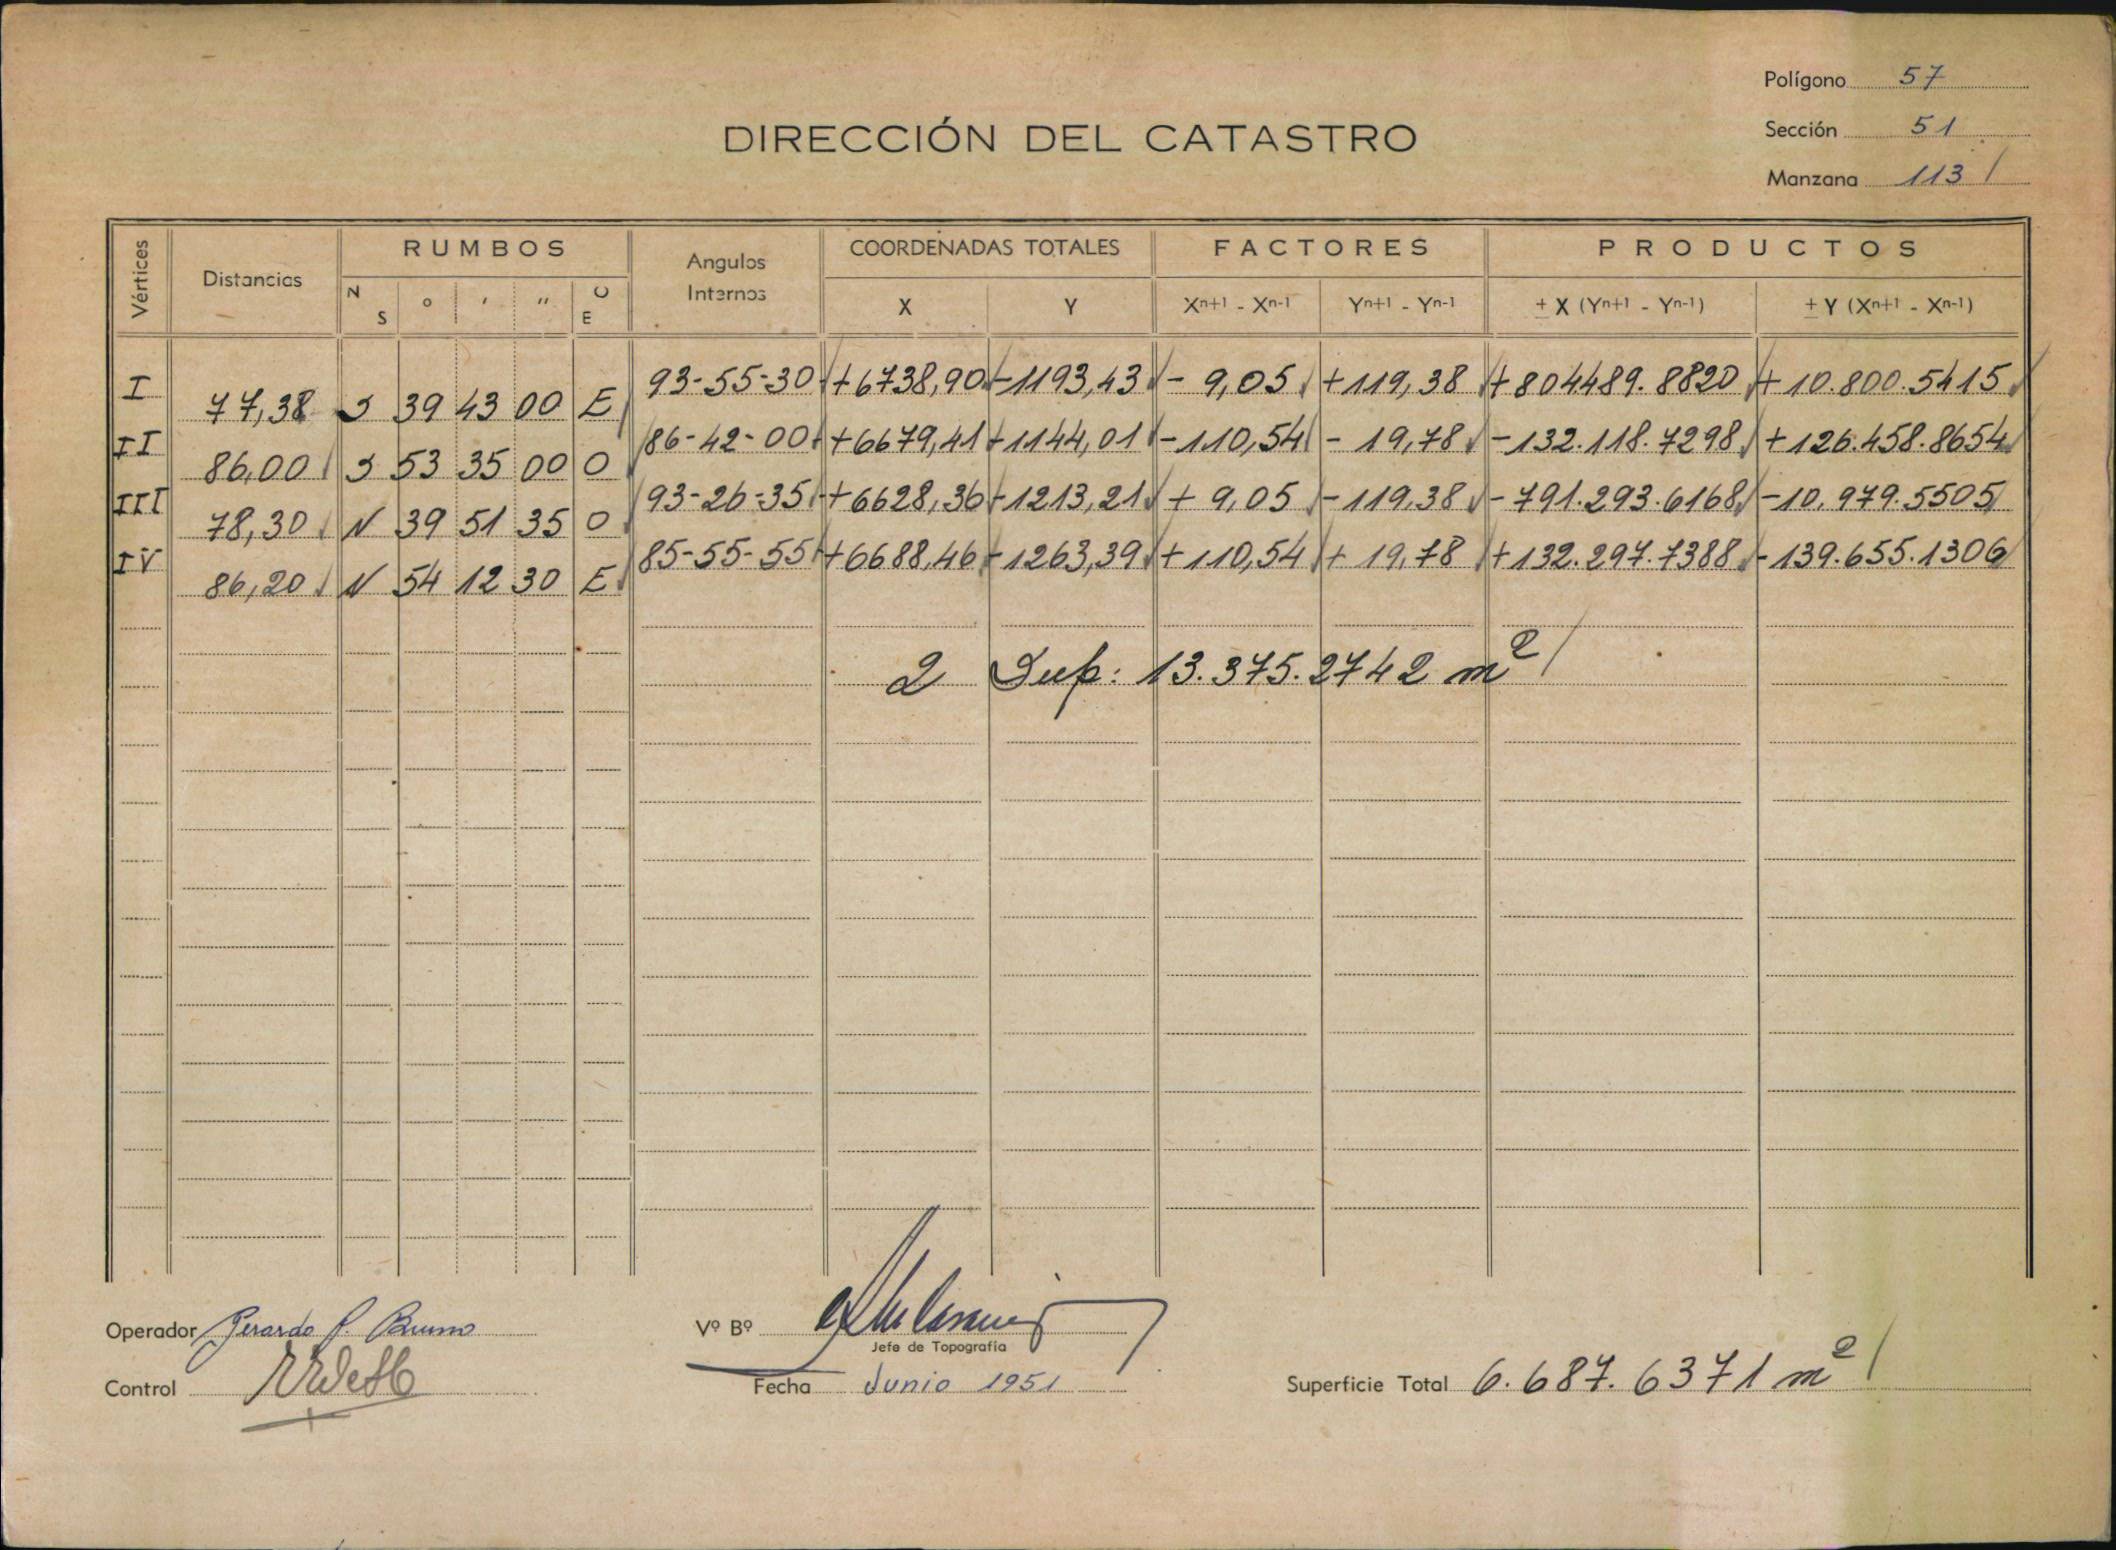 Polígono 57
DIRECCIÓN DEL CATASTRO
Sección 51
Manzana 113
Vértices Distancias RUMBOS Angulos Internos COORDENADAS TOTALES FACTORES PRODUCTOS
N S ° ' " O E X Y Xn+1 - Xn-1 Yn+1 - Yn-1 ± X (Yn+1 - Yn-1) ± Y (Xn+1 - Xn-1)
I 93-55-30 +6738,90 -1193,43 - 9,05 +119,38 +804489.8820 +10.800.5415
77,38 S 39 43 00 E
II 86-42-00 +6679,41 -1144,01 -110,54 - 19,78 -132.118.7298 +126.458.8654
86,00 S 53 35 00 O
III 93-26-35 +6628,36 -1213,21 + 9,05 -119,38 -791.293.6168 -10.979.5505
78,30 N 39 51 35 O
IV 85-55-55 +6688,46 -1263,39 +110,54 + 19,78 +132.297.7388 -139.655.1306
86,20 N 54 12 30 E
2 Sup: 13.375.2742 m2
Operador Gerardo P. Bruno Vº Bº
Jefe de Topografía
Control Fecha Junio 1951 Superficie Total 6.687.6371 m2